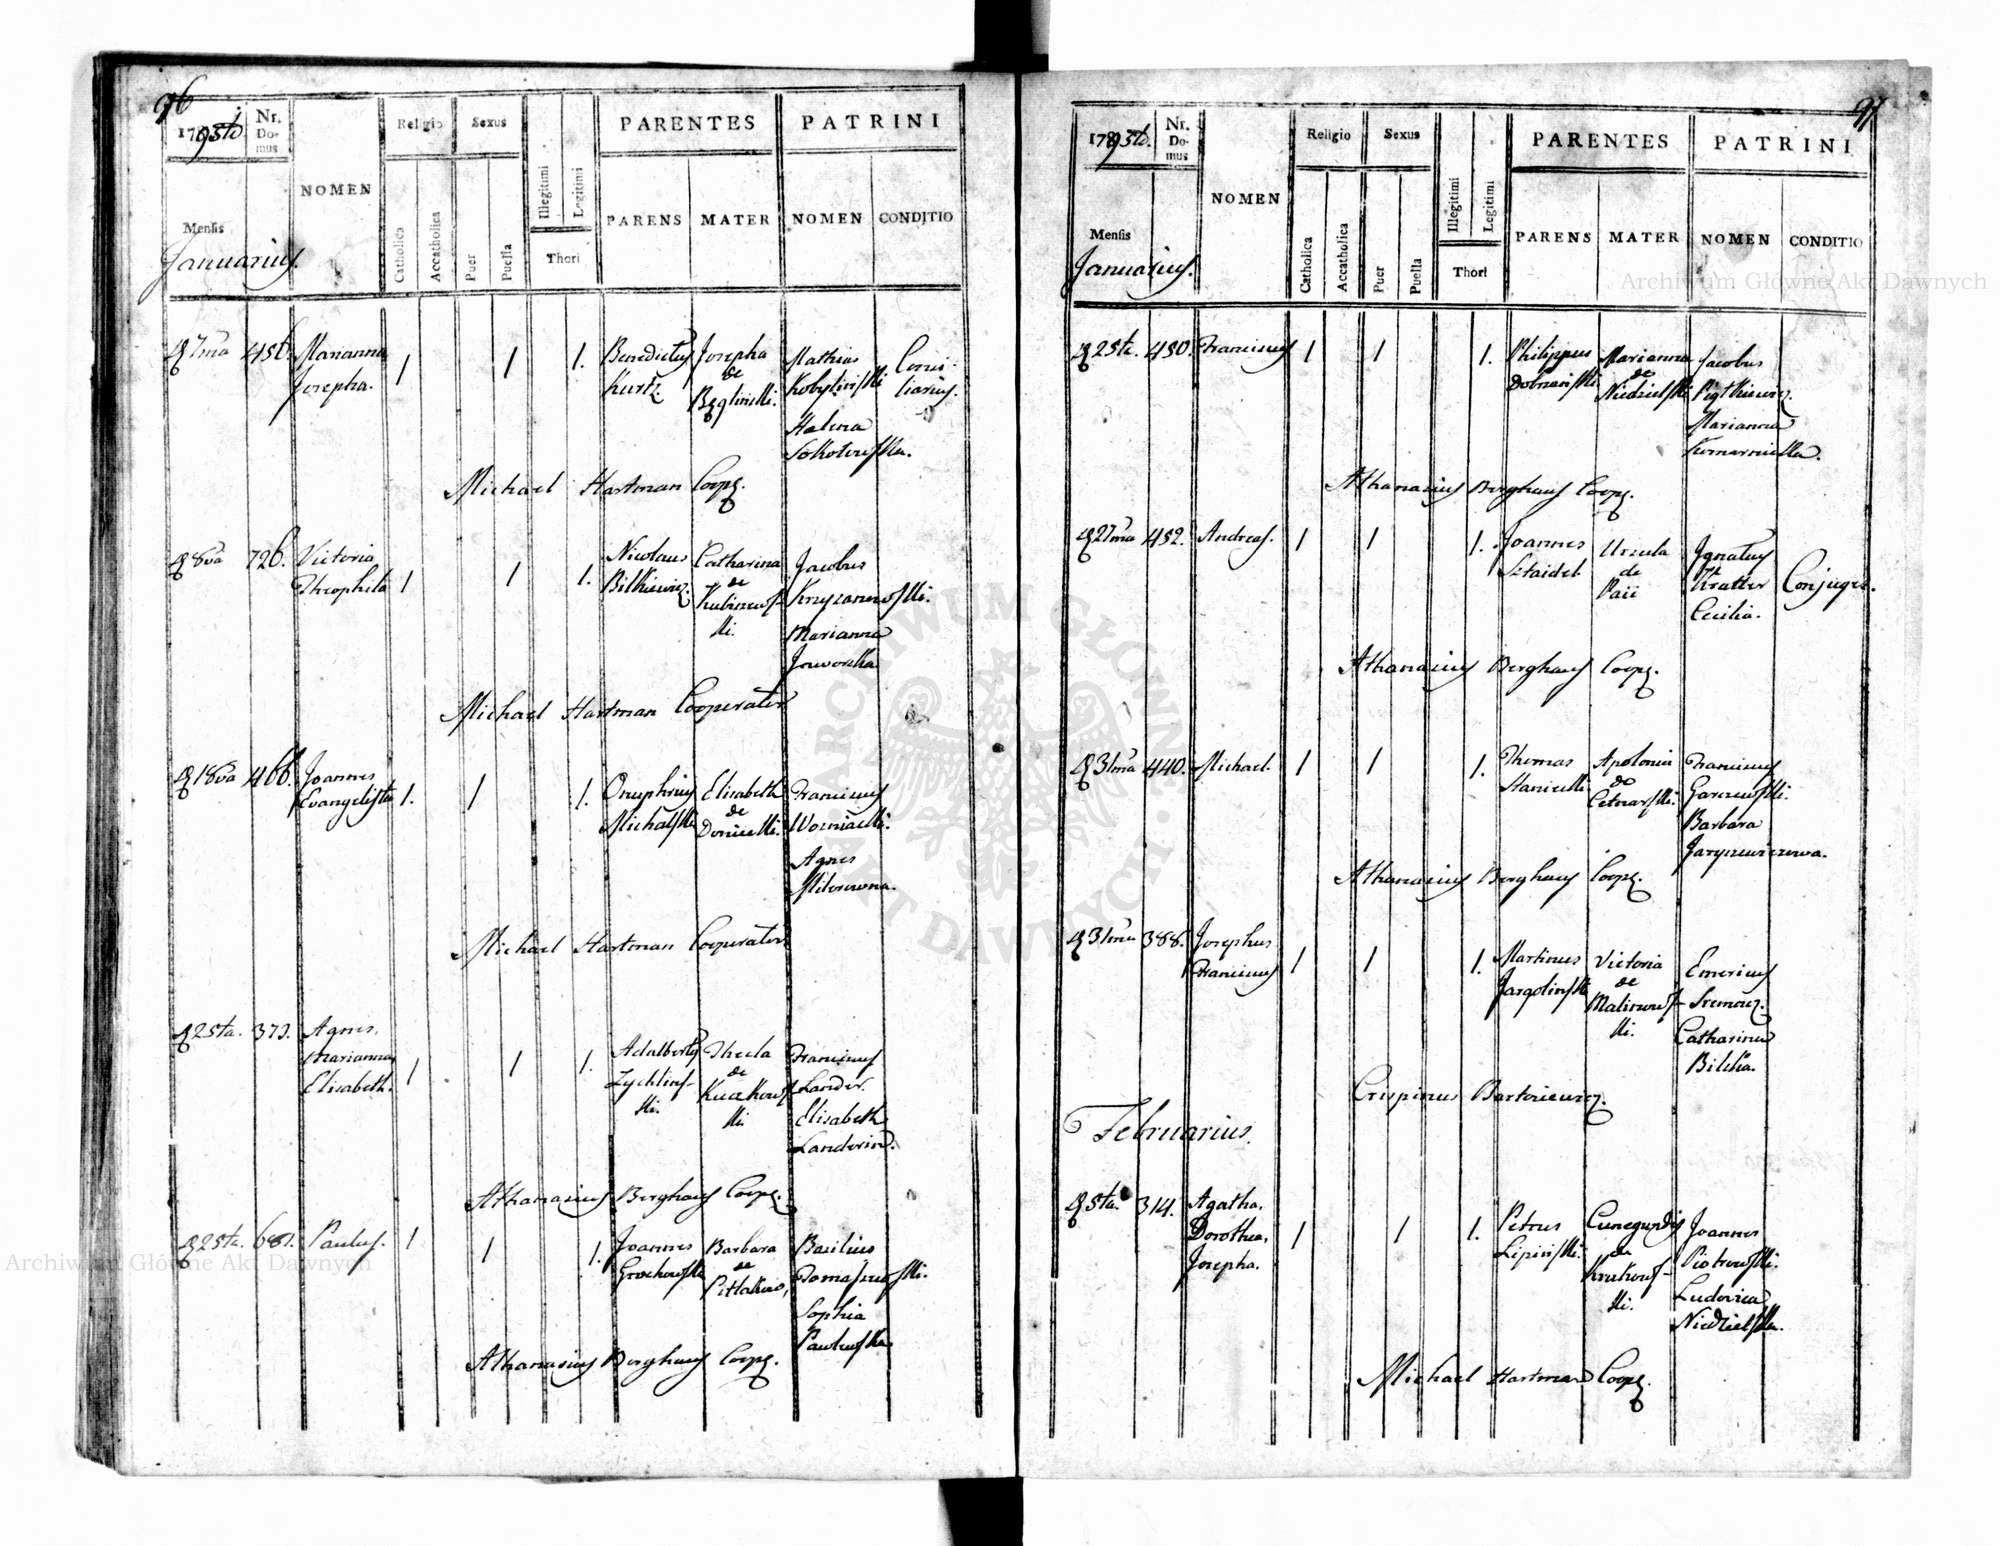 96
1795to
Nr. Domus
NOMEN
Religio
Sexus
Illegitimi
Legitimi
PARENTES
PATRINI
Mensis
Januarius.
Catholica
Accatholica
Puer
Puella
Thori
PARENS
MATER
NOMEN
CONDITIO
17ma 456. Marianna 1 1 1. Benedictus Josepha Mathias
Josepha. Kurtz. de Kobyliński
Helena
Michael Hartman Coopr.
18va 726. Victoria Nicolaus Catharina Jacobus
Theophila 1 1 1. Bilkiewicz. de Krzyzanowski.
Marianna
Jaworska
Michael Hartman Cooperator
18va 466. Joannes Onuphrius Elisabeth Franciscus
Evangelista 1. 1 1. Michalski de Wozniacki.
Agnes
Michael Hartman Cooperator
25ta. 373. Agnes, Adalbertus Thecla Franciscus
Marianna, 1 1 1. Zychlins- de Lander.
Elisabeth. ski. Elisabeth
Landerin.
Athanasius Berghaus Coopr.
25ta. 681. Paulus. 1 1 1. Joannes Barbara Basilius
Grochowski de
Sophia
Pawłowska
Athanasius Berghaus Coopr.
97
1795to.
Nr. Domus
NOMEN
Religio
Sexus
Illegitimi
Legitimi
PARENTES
PATRINI
Mensis
Januarius.
Catholica
Accatholica
Puer
Puella
Thori
PARENS
MATER
NOMEN
CONDITIO
25ta. 450. Franciscus 1 1 1. Philippus Marianna Jacobus
Dobrzański de Niedzielski Piątkiewicz.
Marianna
Komarnicka.
Athanasius Berghaus Coopr.
27ma 452. Andreas. 1 1 1. Joannes Ursula Ignatius
Sztaidel de Kratter Conjuges.
Cecilia.
Athanasius Berghaus Coopr.
31ma 440. Michael. 1 1 1. Thomas Apolonia Franciscus
Stanicki de Cetnarski. Garczewski.
Barbara
Jaryszewiczowa.
Athanasius Berghaus Coopr.
31ma 388. Josephus Martinus Victoria Emericus
Franciscus 1 1 1. de
Malinows- ski. Catharina
Crispinus Bartosiewicz.
Februarius.
5ta. 314. Agatha, Petrus Cunegundis Joannes
Dorothea, 1 1 1. Lipiński. de Piotrowski.
Josepha. Krukows- ski. Ludovica
Niedzielska.
Michael Hartman Coopr.
Archiwum Główne Akt Dawnych
Archiwum Główne Akt Dawnych
ARCHIWUM GŁÓWNE · AKT DAWNYCH ·